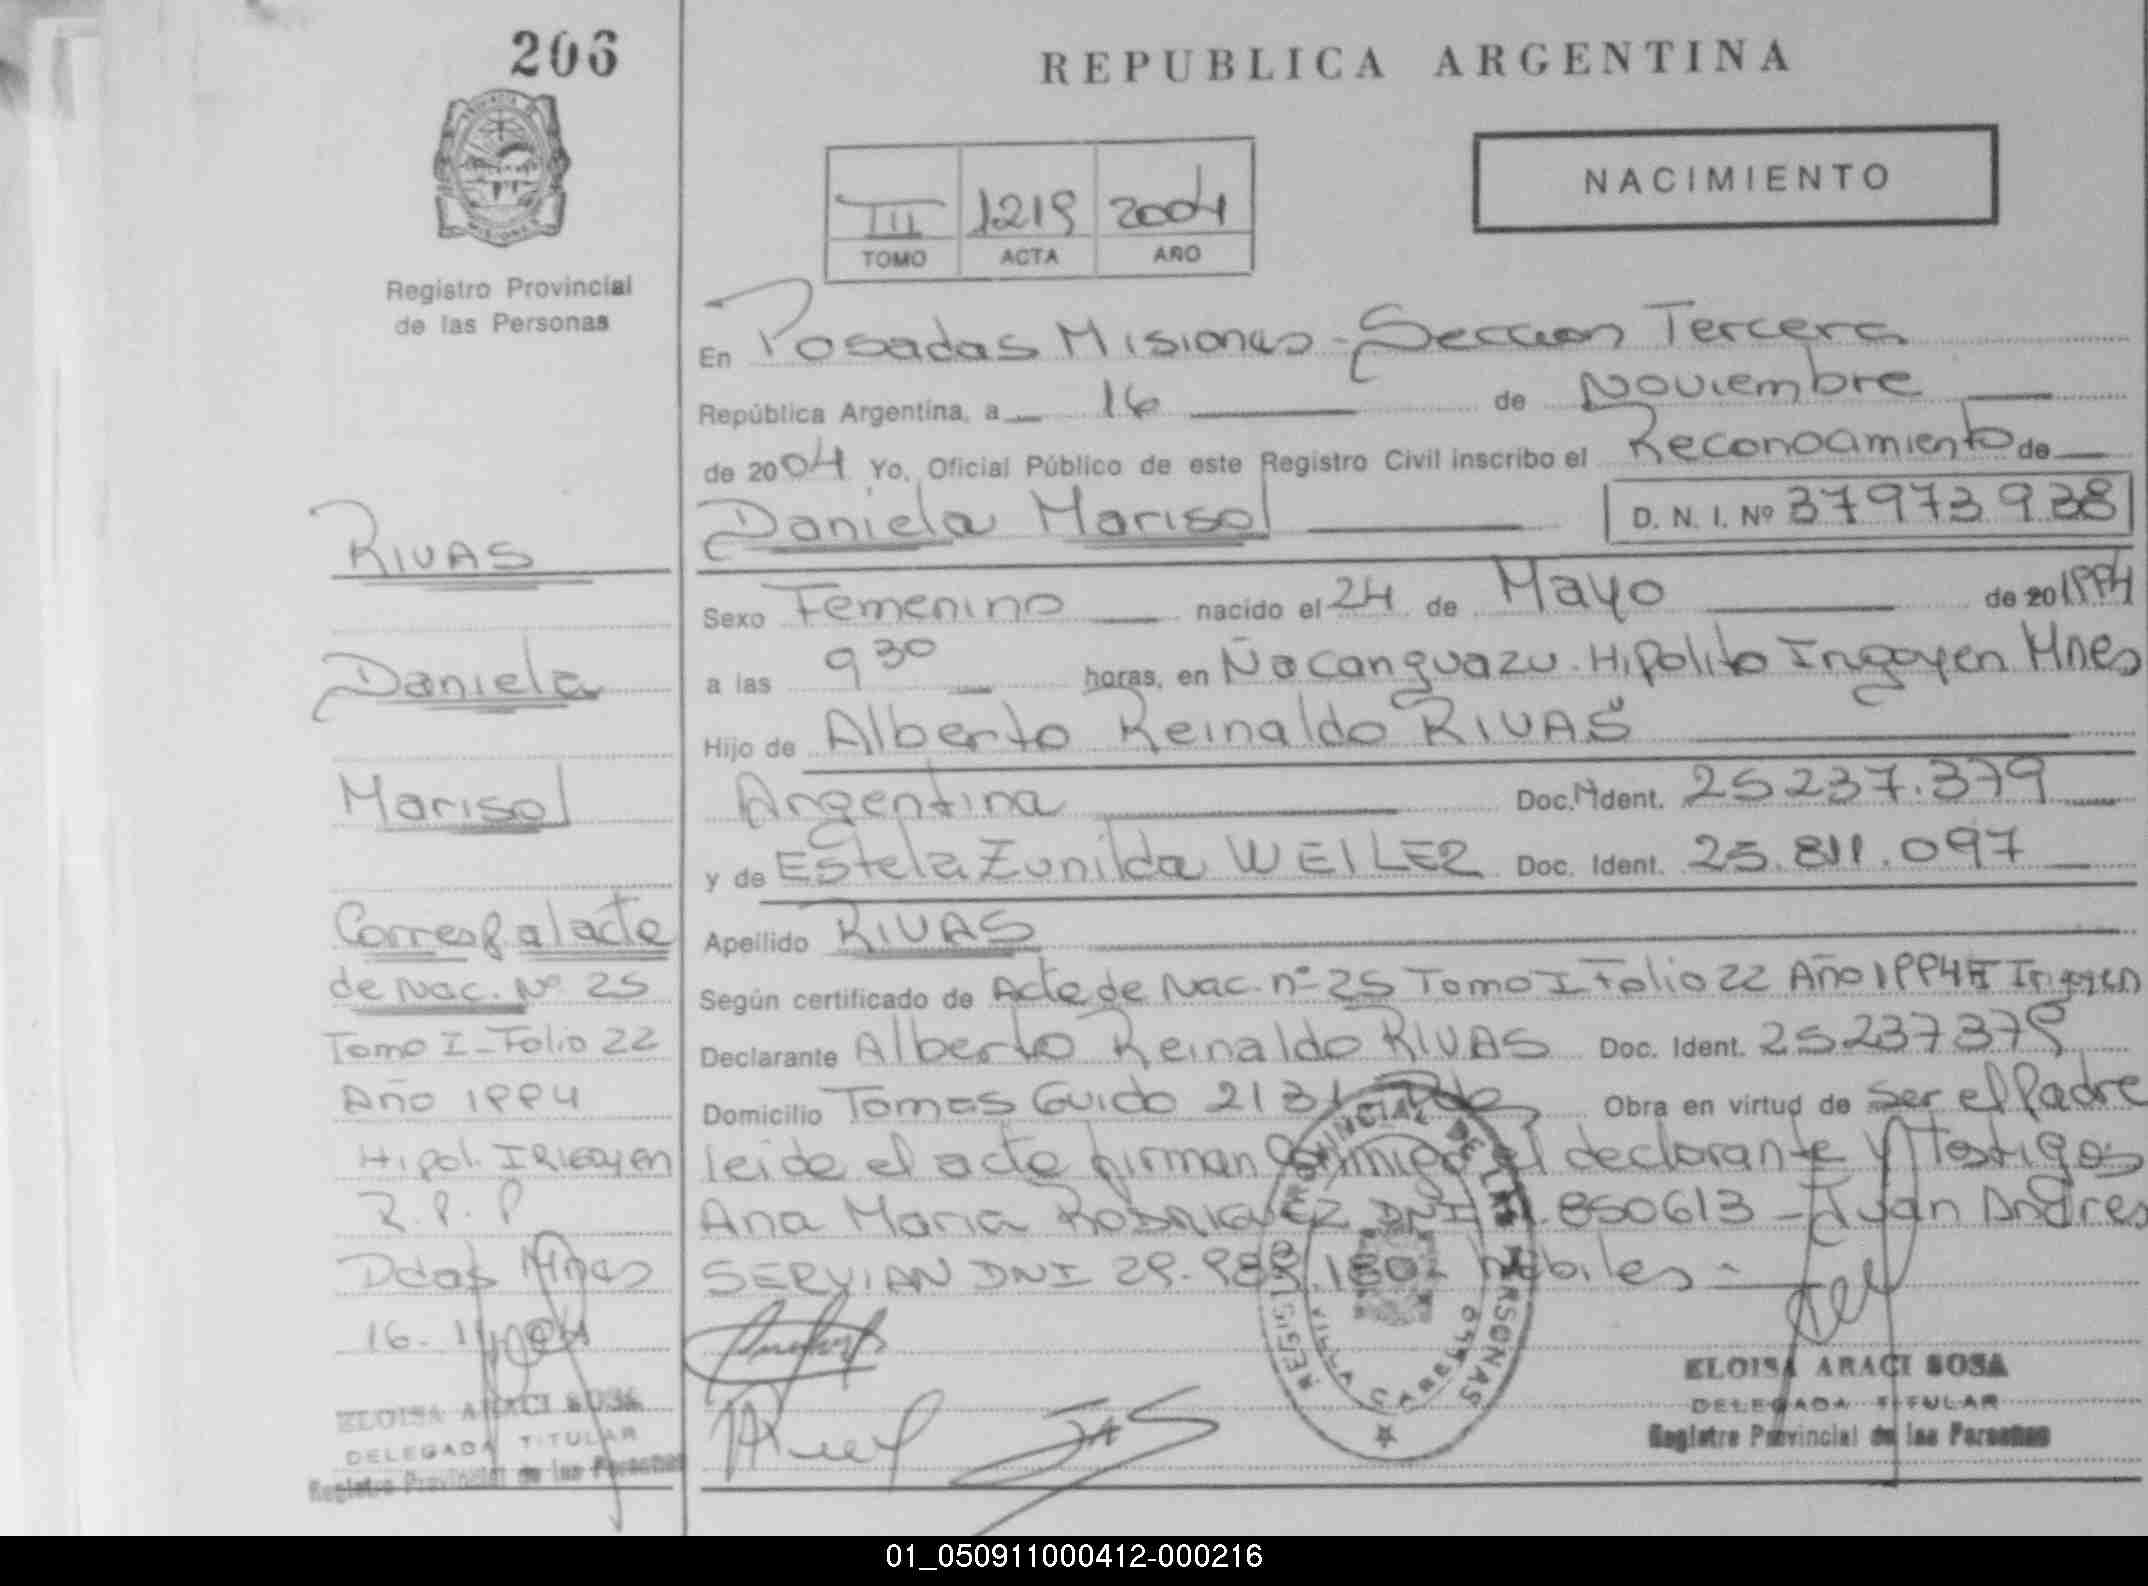 206
Registro Provincial
de las Personas
RIVAS
Daniela
Marisol
Corresp al acta
de Nac. Nº 25
Tomo I - Folio 22
Año 1994
Hipol. IRIGOYEN
R. P. P
Pdas Mnes
16. 11
ELOISA ARACI SOSA
DELEGADA TITULAR
Registro Provincial de las Personas
REPUBLICA ARGENTINA
NACIMIENTO
III 1219 2004
TOMO ACTA AÑO
En Posadas Misiones - Seccion Tercera
República Argentina, a 16 de Noviembre
de 2004 Yo, Oficial Público de este Registro Civil inscribo el Reconocimiento de
Daniela Marisol D. N. I. Nº 37973938
Sexo Femenino nacido el 24 de Mayo de 20 1994
a las 9 30 horas, en Ñacanguazu. Hipolito Irigoyen Mnes
Hijo de Alberto Reinaldo RIVAS
Argentina Doc. Ident. 25237.379
y de Estela Zunilda WEILER Doc. Ident. 25.811.097
Apellido RIVAS
Según certificado de Acta de Nac. nº 25 Tomo I Folio 22 Año 1994 H Irigoyen
Declarante Alberto Reinaldo RIVAS Doc. Ident. 25237379
Domicilio Tomas Guido 2131 Pdas Obra en virtud de ser el Padre
leida el acta firman conmigo el declarante y Testigos
Ana Maria RODRIGUEZ DNI 850613 - Juan Andres
SERVIAN DNI 29.988.180 - habiles -
REGISTRO PROVINCIAL DE LAS PERSONAS
ELOISA ARACI SOSA
DELEGADA TITULAR
Registro Provincial de las Personas
01_050911000412-000216